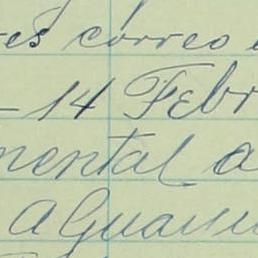 es correo
- 14 Febr
mental a
a Guan